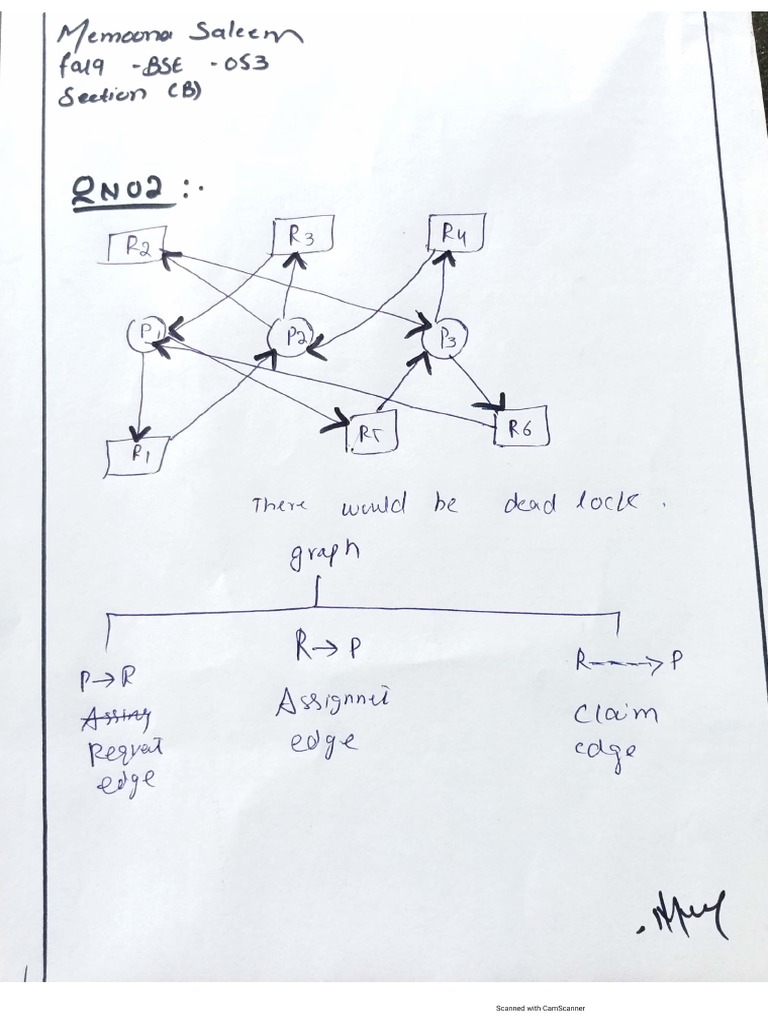 Memoona Saleem
fa19 -BSE -053
Section (B)
QNO2 :.
R2
R3
R4
P1
P2
P3
R1
R5
R6
There would be dead lock.
graph
P→R
R→P
R---->P
Assing
Assignnet
Claim
Request
edge
edge
edge
Scanned with CamScanner